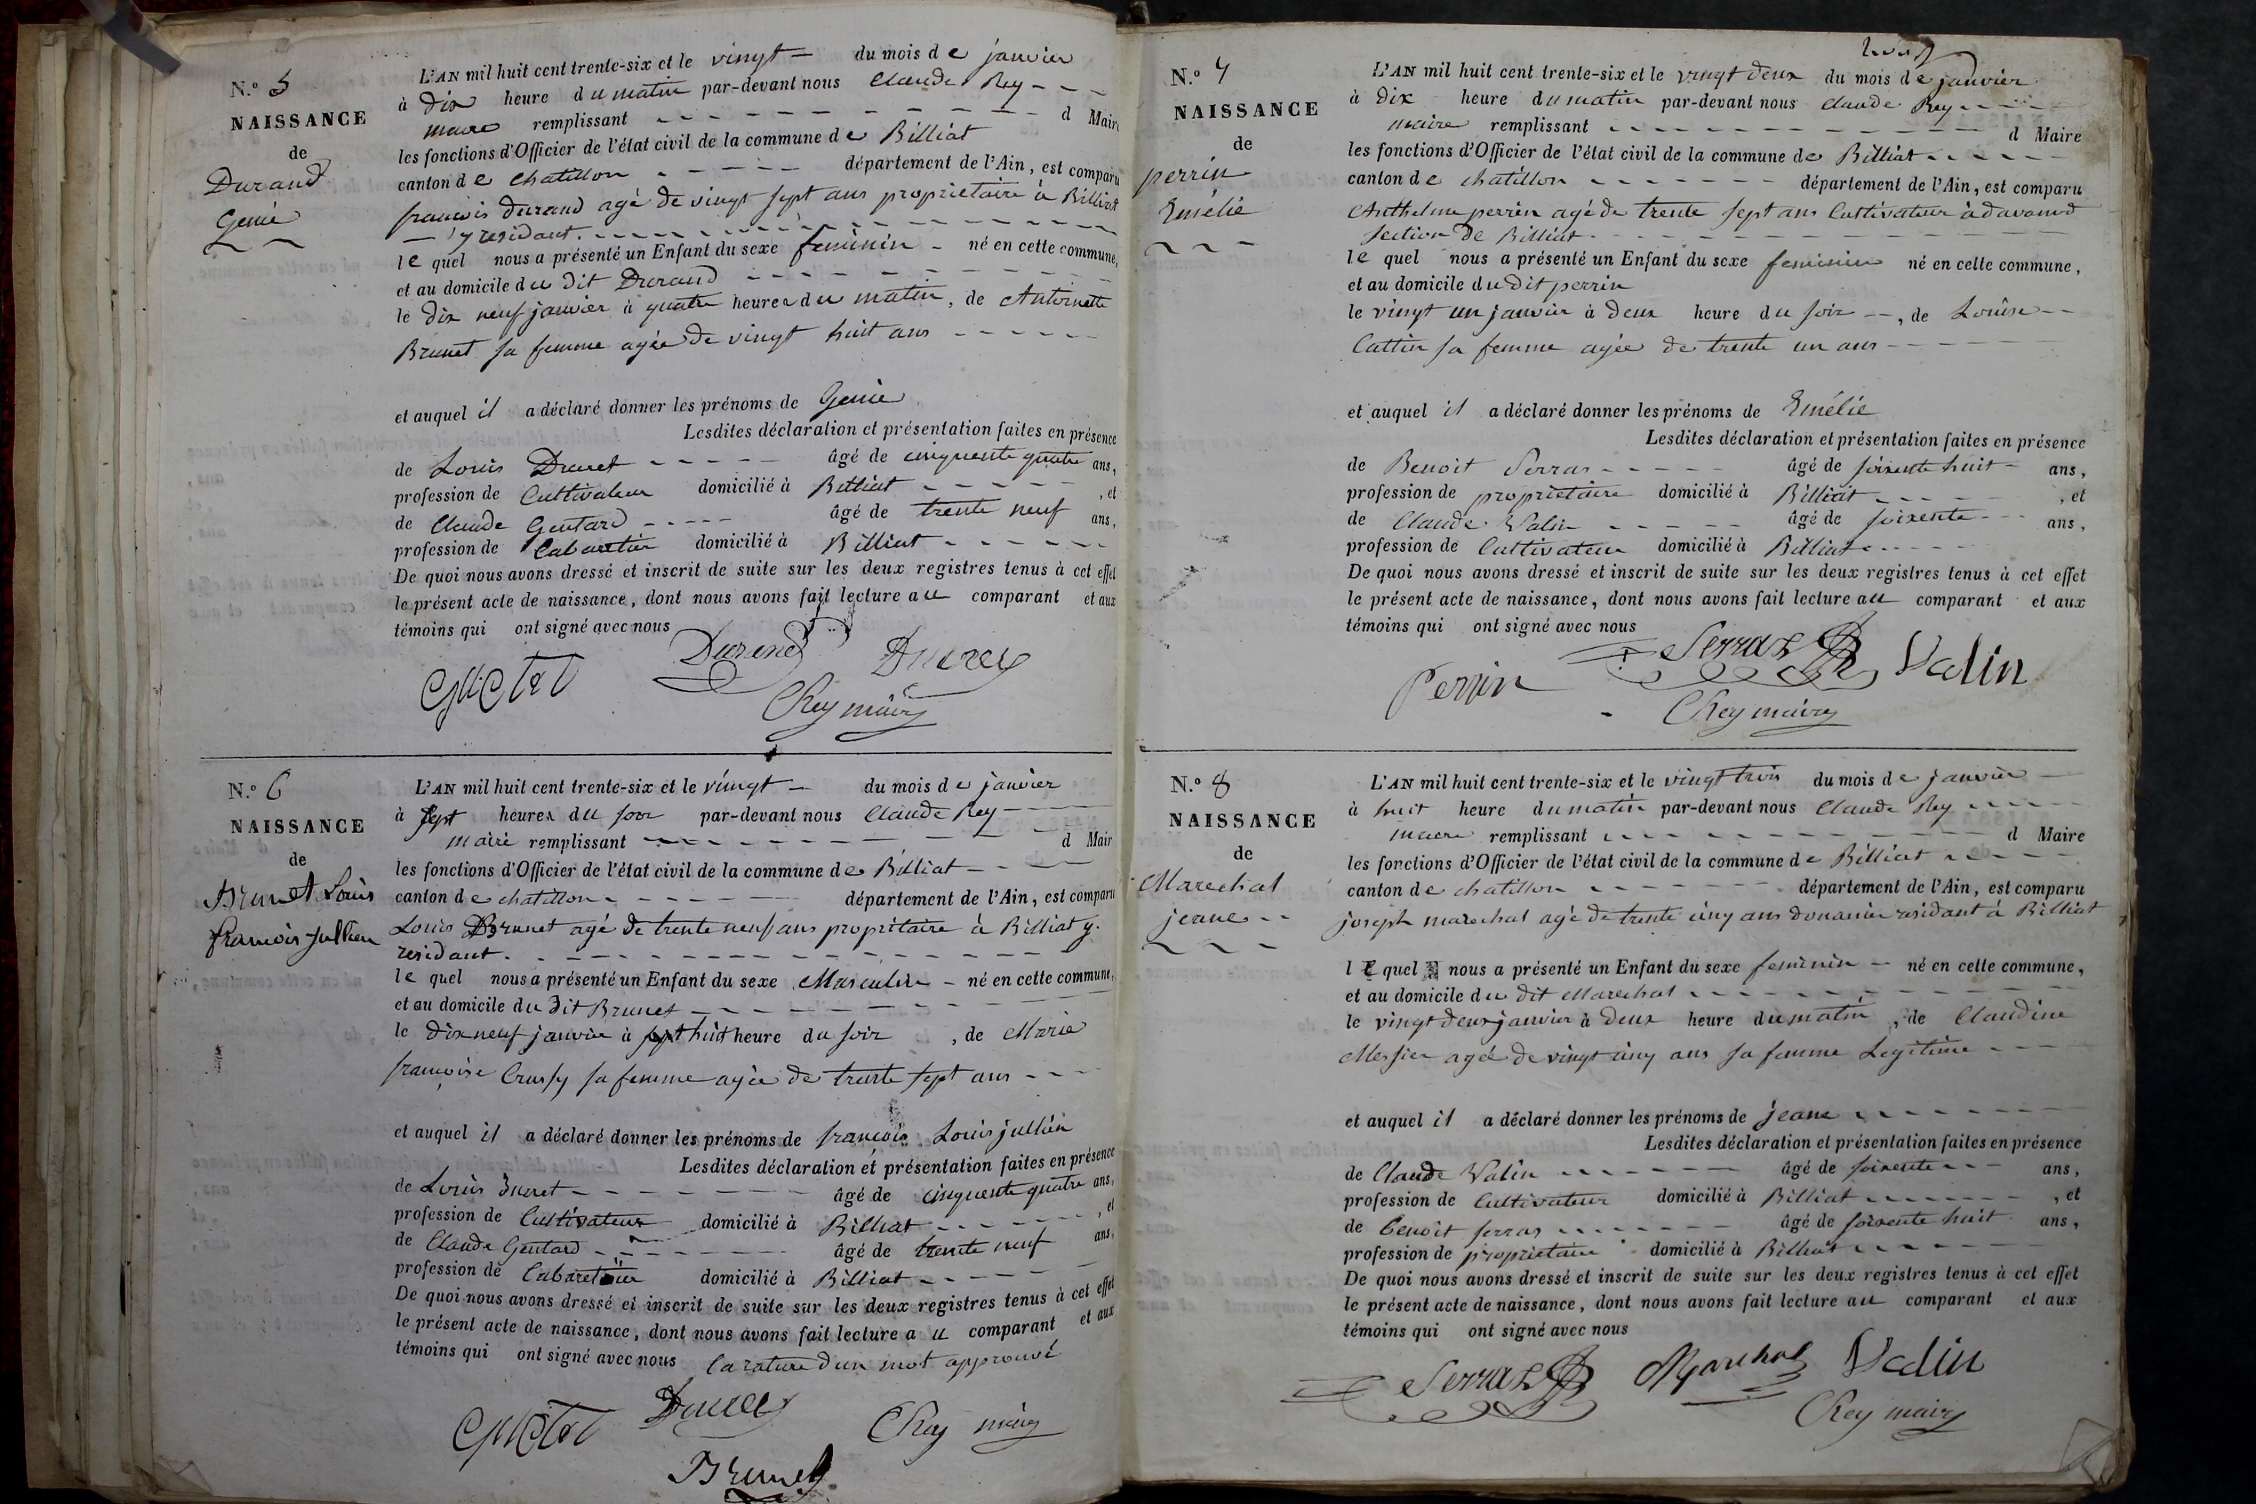 N.º 5
NAISSANCE
de
Durand
Genie
L'AN mil huit cent trente-six et le vingt du mois de janvier
à dix heure du matin par-devant nous Claude Rey
maire remplissant d Maire
les fonctions d'Officier de l'état civil de la commune de Billiat
canton de chatillon département de l'Ain, est comparu
francois Durand agé de vingt sept ans proprietaire à Billiat
y residant.
le quel nous a présenté un Enfant du sexe feminin né en cette commune,
et au domicile du dit Durand
le dix neuf janvier à quatre heures du matin, de Antoinette
Brunet sa femme agée de vingt huit ans
et auquel il a déclaré donner les prénoms de Genie
Lesdites déclaration et présentation faites en présence
de Louis Ducret âgé de cinquente quatre ans,
profession de Cultivateur domicilié à Billiat , et
de Claude Gentard âgé de trente neuf ans,
profession de Cabaretier domicilié à Billiat
De quoi nous avons dressé et inscrit de suite sur les deux registres tenus à cet effet
le présent acte de naissance, dont nous avons fait lecture au comparant et aux
témoins qui ont signé avec nous
Durand Ducret
CRey maire
N.º 6
NAISSANCE
de
Brunet Louis
francois jullien
L'AN mil huit cent trente-six et le vingt du mois de janvier
à sept heures du soir par-devant nous Claude Rey
maire remplissant d Mair
les fonctions d'Officier de l'état civil de la commune de Billiat
canton de chatillon département de l'Ain, est comparu
Louis Brunet agé de trente neuf ans propritaire à Billiat y
residant.
le quel nous a présenté un Enfant du sexe Masculin né en cette commune,
et au domicile du dit Brunet
le dix neuf janvier à sept huit heure du soir , de Marie
françoise Crussy sa femme agée de trente sept ans
et auquel il a déclaré donner les prénoms de francois Louis jullien
Lesdites déclaration et présentation faites en présence
de Louis Ducret âgé de cinquente quatre ans,
profession de Cultivateur domicilié à Billiat , et
de Claude Gentard âgé de trente neuf ans,
profession de Cabaretier domicilié à Billiat
De quoi nous avons dressé et inscrit de suite sur les deux registres tenus à cet effet
le présent acte de naissance, dont nous avons fait lecture au comparant et aux
témoins qui ont signé avec nous la rature d'un mot approuvé
Ducret CRey maire
Brunet
N.º 7
NAISSANCE
de
perrin
Emélie
L'AN mil huit cent trente-six et le vingt deux du mois de janvier
à dix heure du matin par-devant nous claude Rey
maire remplissant d Maire
les fonctions d'Officier de l'état civil de la commune de Billiat
canton de chatillon département de l'Ain, est comparu
Anthelme perrin agé de trente sept ans Cultivateur à davanod
section de Billiat
le quel nous a présenté un Enfant du sexe feminin né en cette commune,
et au domicile du dit perrin
le vingt un janvier à deux heure du soir , de Louise
Cattin sa femme agée de trente un ans
et auquel il a déclaré donner les prénoms de Emélie
Lesdites déclaration et présentation faites en présence
de Benoit Serras âgé de soixente huit ans,
profession de proprietaire domicilié à Billiat , et
de Claude Valin âgé de soixente ans,
profession de Cultivateur domicilié à Billiat
De quoi nous avons dressé et inscrit de suite sur les deux registres tenus à cet effet
le présent acte de naissance, dont nous avons fait lecture au comparant et aux
témoins qui ont signé avec nous
Perrin Serras Valin
CRey maire
N.º 8
NAISSANCE
de
Marechal
jeane
L'AN mil huit cent trente-six et le vingt trois du mois de janvier
à huit heure du matin par-devant nous Claude Rey
maire remplissant d Maire
les fonctions d'Officier de l'état civil de la commune de Billiat
canton de chatillon département de l'Ain, est comparu
joseph marechal agé de trente cinq ans douanier residant à Billiat
le quel nous a présenté un Enfant du sexe feminin né en cette commune,
et au domicile du dit Marechal
le vingt deux janvier à deux heure du matin , de Claudine
Messier agée de vingt cinq ans sa femme Legitime
et auquel il a déclaré donner les prénoms de jeane
Lesdites déclaration et présentation faites en présence
de Claude Valin âgé de soixente ans,
profession de Cultivateur domicilié à Billiat , et
de benoit serras âgé de soixente huit ans,
profession de proprietaire domicilié à Billiat
De quoi nous avons dressé et inscrit de suite sur les deux registres tenus à cet effet
le présent acte de naissance, dont nous avons fait lecture au comparant et aux
témoins qui ont signé avec nous
Serras Marechal Valin
CRey maire